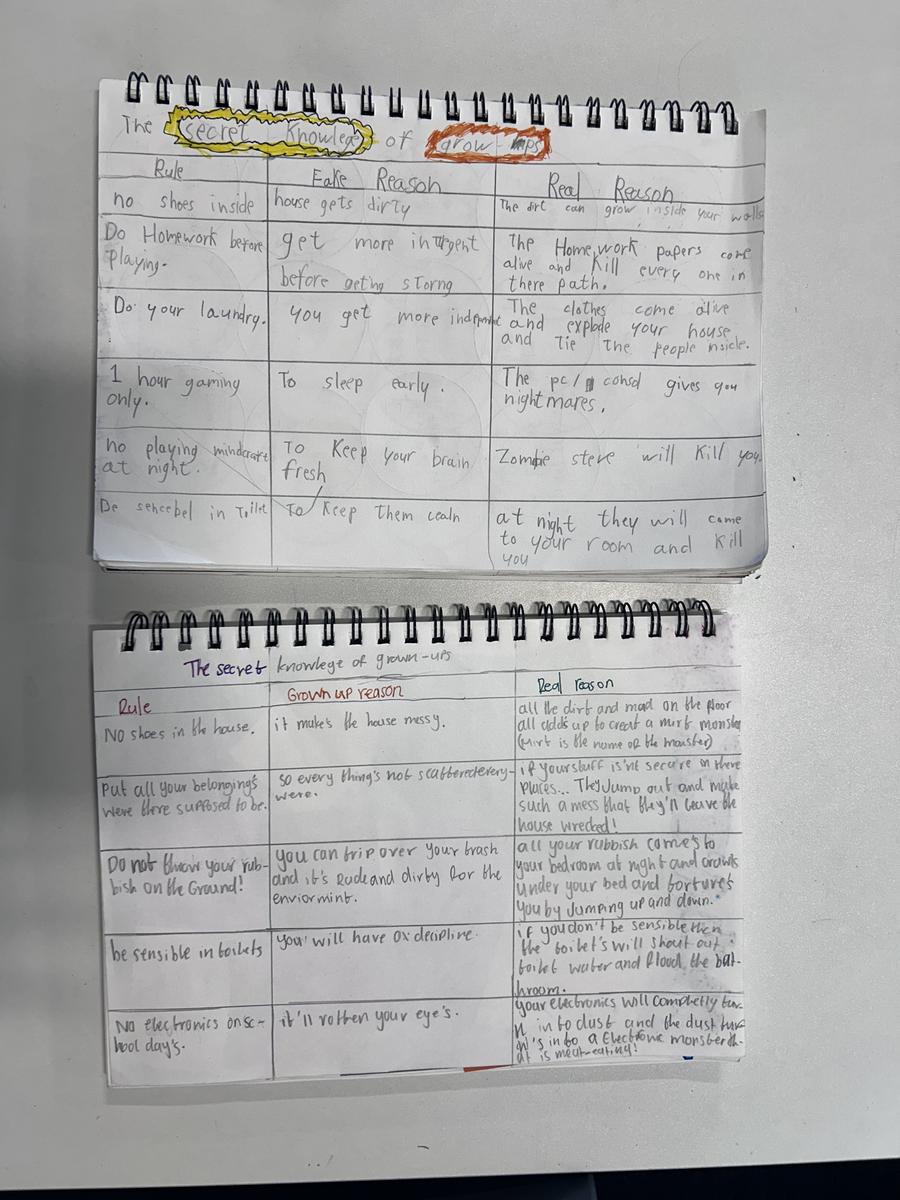 The secret knowlege of grow-ups
Rule Fake Reason Real Reason
no shoes inside
house gets dirty
The dirt can grow inside your walls
Do Homework before
playing.
get more inturgent
before geting storng
The Homework papers come
alive and kill every one in
there path.
Do your laundry.
you get more indepnent
The clothes come alive
and explode your house
and Tie The people inside.
1 hour gaming
only.
To sleep early.
The pc/ consol gives you
nightmares.
no playing mindcraft
at night.
To Keep your brain
fresh
Zombie steve will kill you.
Be sencebel in Toilet
To Keep them cealn
at night they will come
to your room and kill
you
The secret knowlege of grown-ups
Rule Grown up reason Real reason
NO shoes in the house.
it makes the house messy.
all the dirt and mud on the floor
all adds up to creat a mirt monster
(Mirt is the name of the monster)
Put all your belonging's
were there supposed to be.
so every thing's not scattered every-
were.
if your stuff is'nt secure in there
places... They Jump out and make
such a mess that they'll leave the
house wrecked!
Do not throw your rub-
bish on the Ground!
you can trip over your trash
and it's Rude and dirty for the
enviormint.
all your rubbish comes to
your bedroom at night and crawls
under your bed and tortures
you by Jumping up and down.
be sensible in toilets
you will have 0% decipline.
if you don't be sensible then
the toilet's will shout out
toilet water and flood the bat-
hroom.
No electronics on sc-
hool day's.
it'll rotten your eye's.
your electronics will completly tur-
n in to dust and the dust tur
n's into a Electronic monster th-
at is meat-eating!